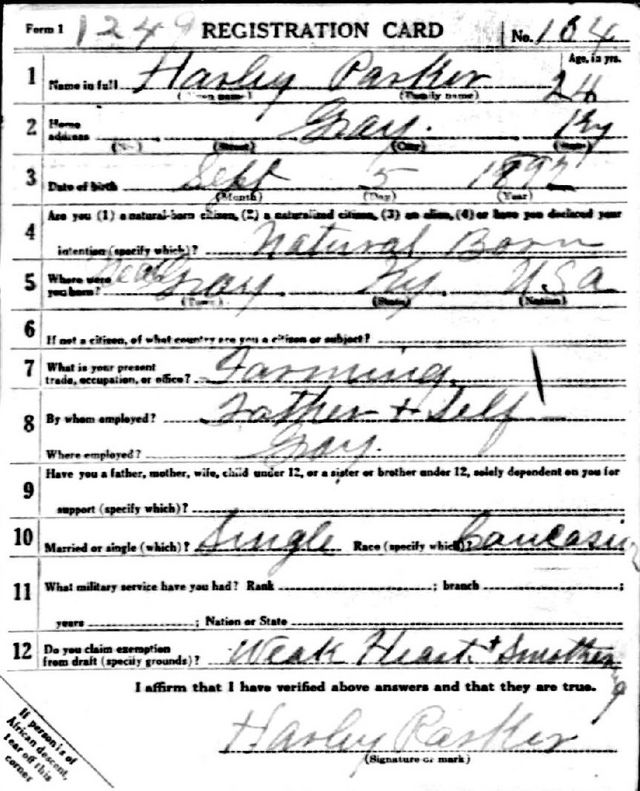 Form 1 1249 REGISTRATION CARD No. 184
1 Name in full Harley Parker Age, in yrs. 24
(Given name) (Family name)
2 Home address Gray. Ky
(No.) (Street) (City) (State)
3 Date of birth Sept 5
(Month) (Day) (Year)
Are you (1) a natural-born citizen, (2) a naturalized citizen, (3) an alien, (4) or have you declared your
4 intention (specify which)? Natural Born
5 Where were you born? near Gray Ky USA
(Town) (State) (Nation)
6 If not a citizen, of what country are you a citizen or subject?
7 What is your present trade, occupation, or office? Farming
8 By whom employed? Father + Self
Where employed? Gray.
9 Have you a father, mother, wife, child under 12, or a sister or brother under 12, solely dependent on you for
support (specify which)?
10 Married or single (which)? Single Race (specify which)? Caucasian
11 What military service have you had? Rank ; branch ;
years ; Nation or State
12 Do you claim exemption from draft (specify grounds)? Weak Heart + Smothering
I affirm that I have verified above answers and that they are true.
Harley Parker
(Signature or mark)
If person is of
African descent,
tear off this
corner